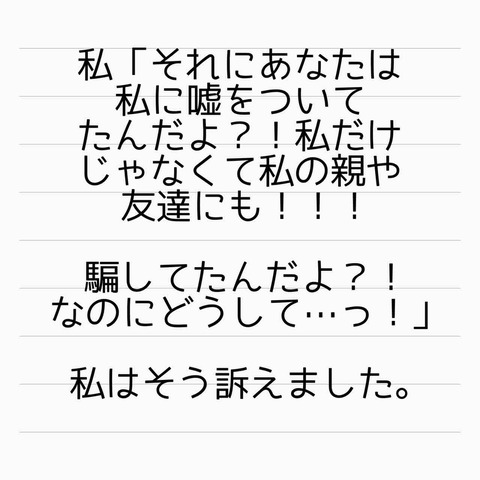 私「それにあなたは
私に嘘をついて
たんだよ？！私だけ
じゃなくて私の親や
友達にも！！！
騙してたんだよ？！
なのにどうして…っ！」
私はそう訴えました。